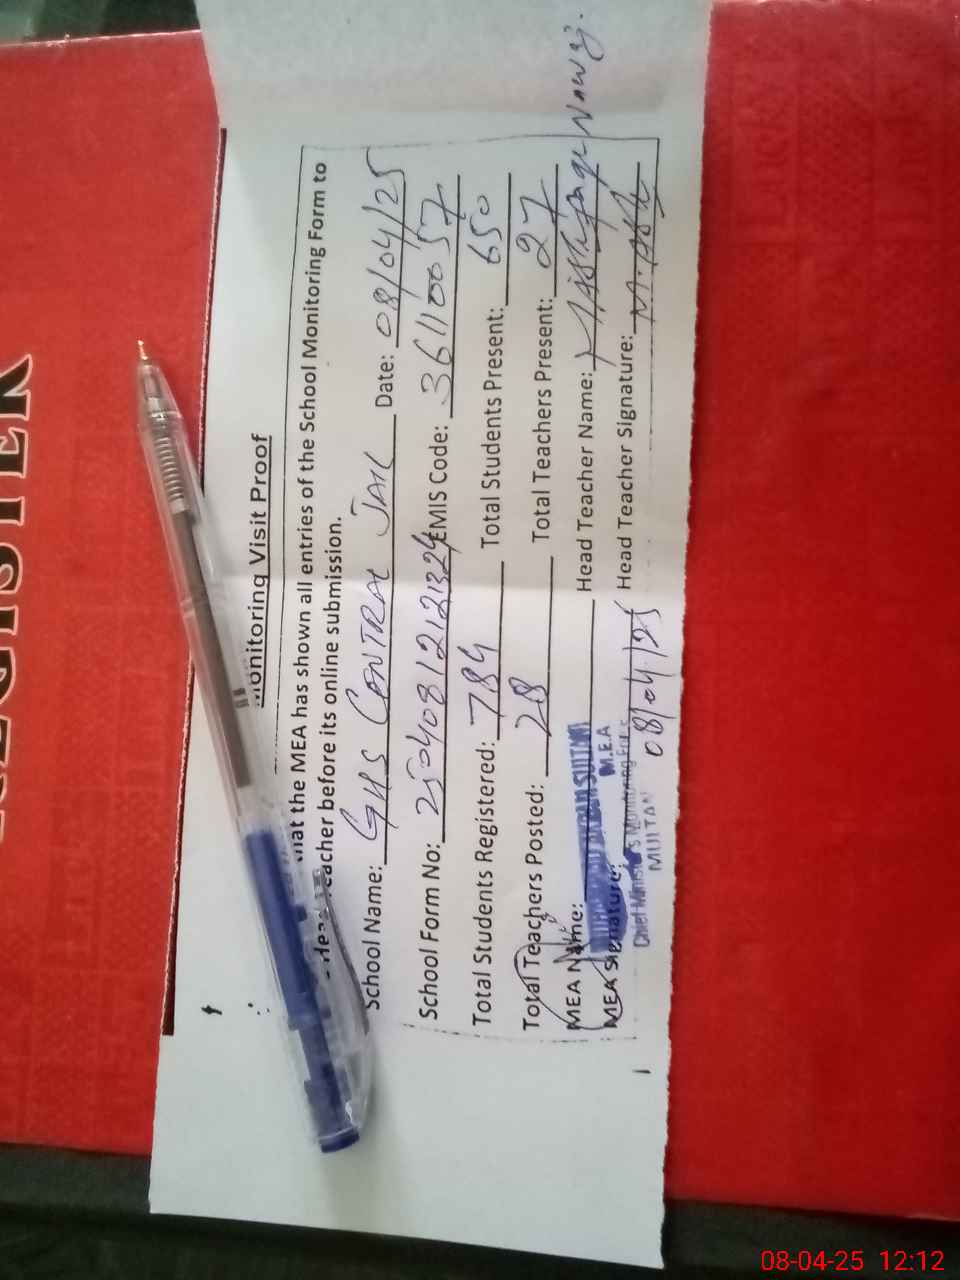 REGISTER
Monitoring Visit Proof
that the MEA has shown all entries of the School Monitoring Form to
Head Teacher before its online submission.
School Name: GHS CENTRAL JAIL Date: 08/04/25
School Form No: 250408121324 EMIS Code: 36110057
Total Students Registered: 784 Total Students Present: 650
Total Teachers Posted: 28 Total Teachers Present: 27
MEA Name: Head Teacher Name:
MEA Signature: Head Teacher Signature:
SULTAN
M.E.A
Chief Minister's Monitoring Force
MULTAN
08/04/25
08-04-25 12:12